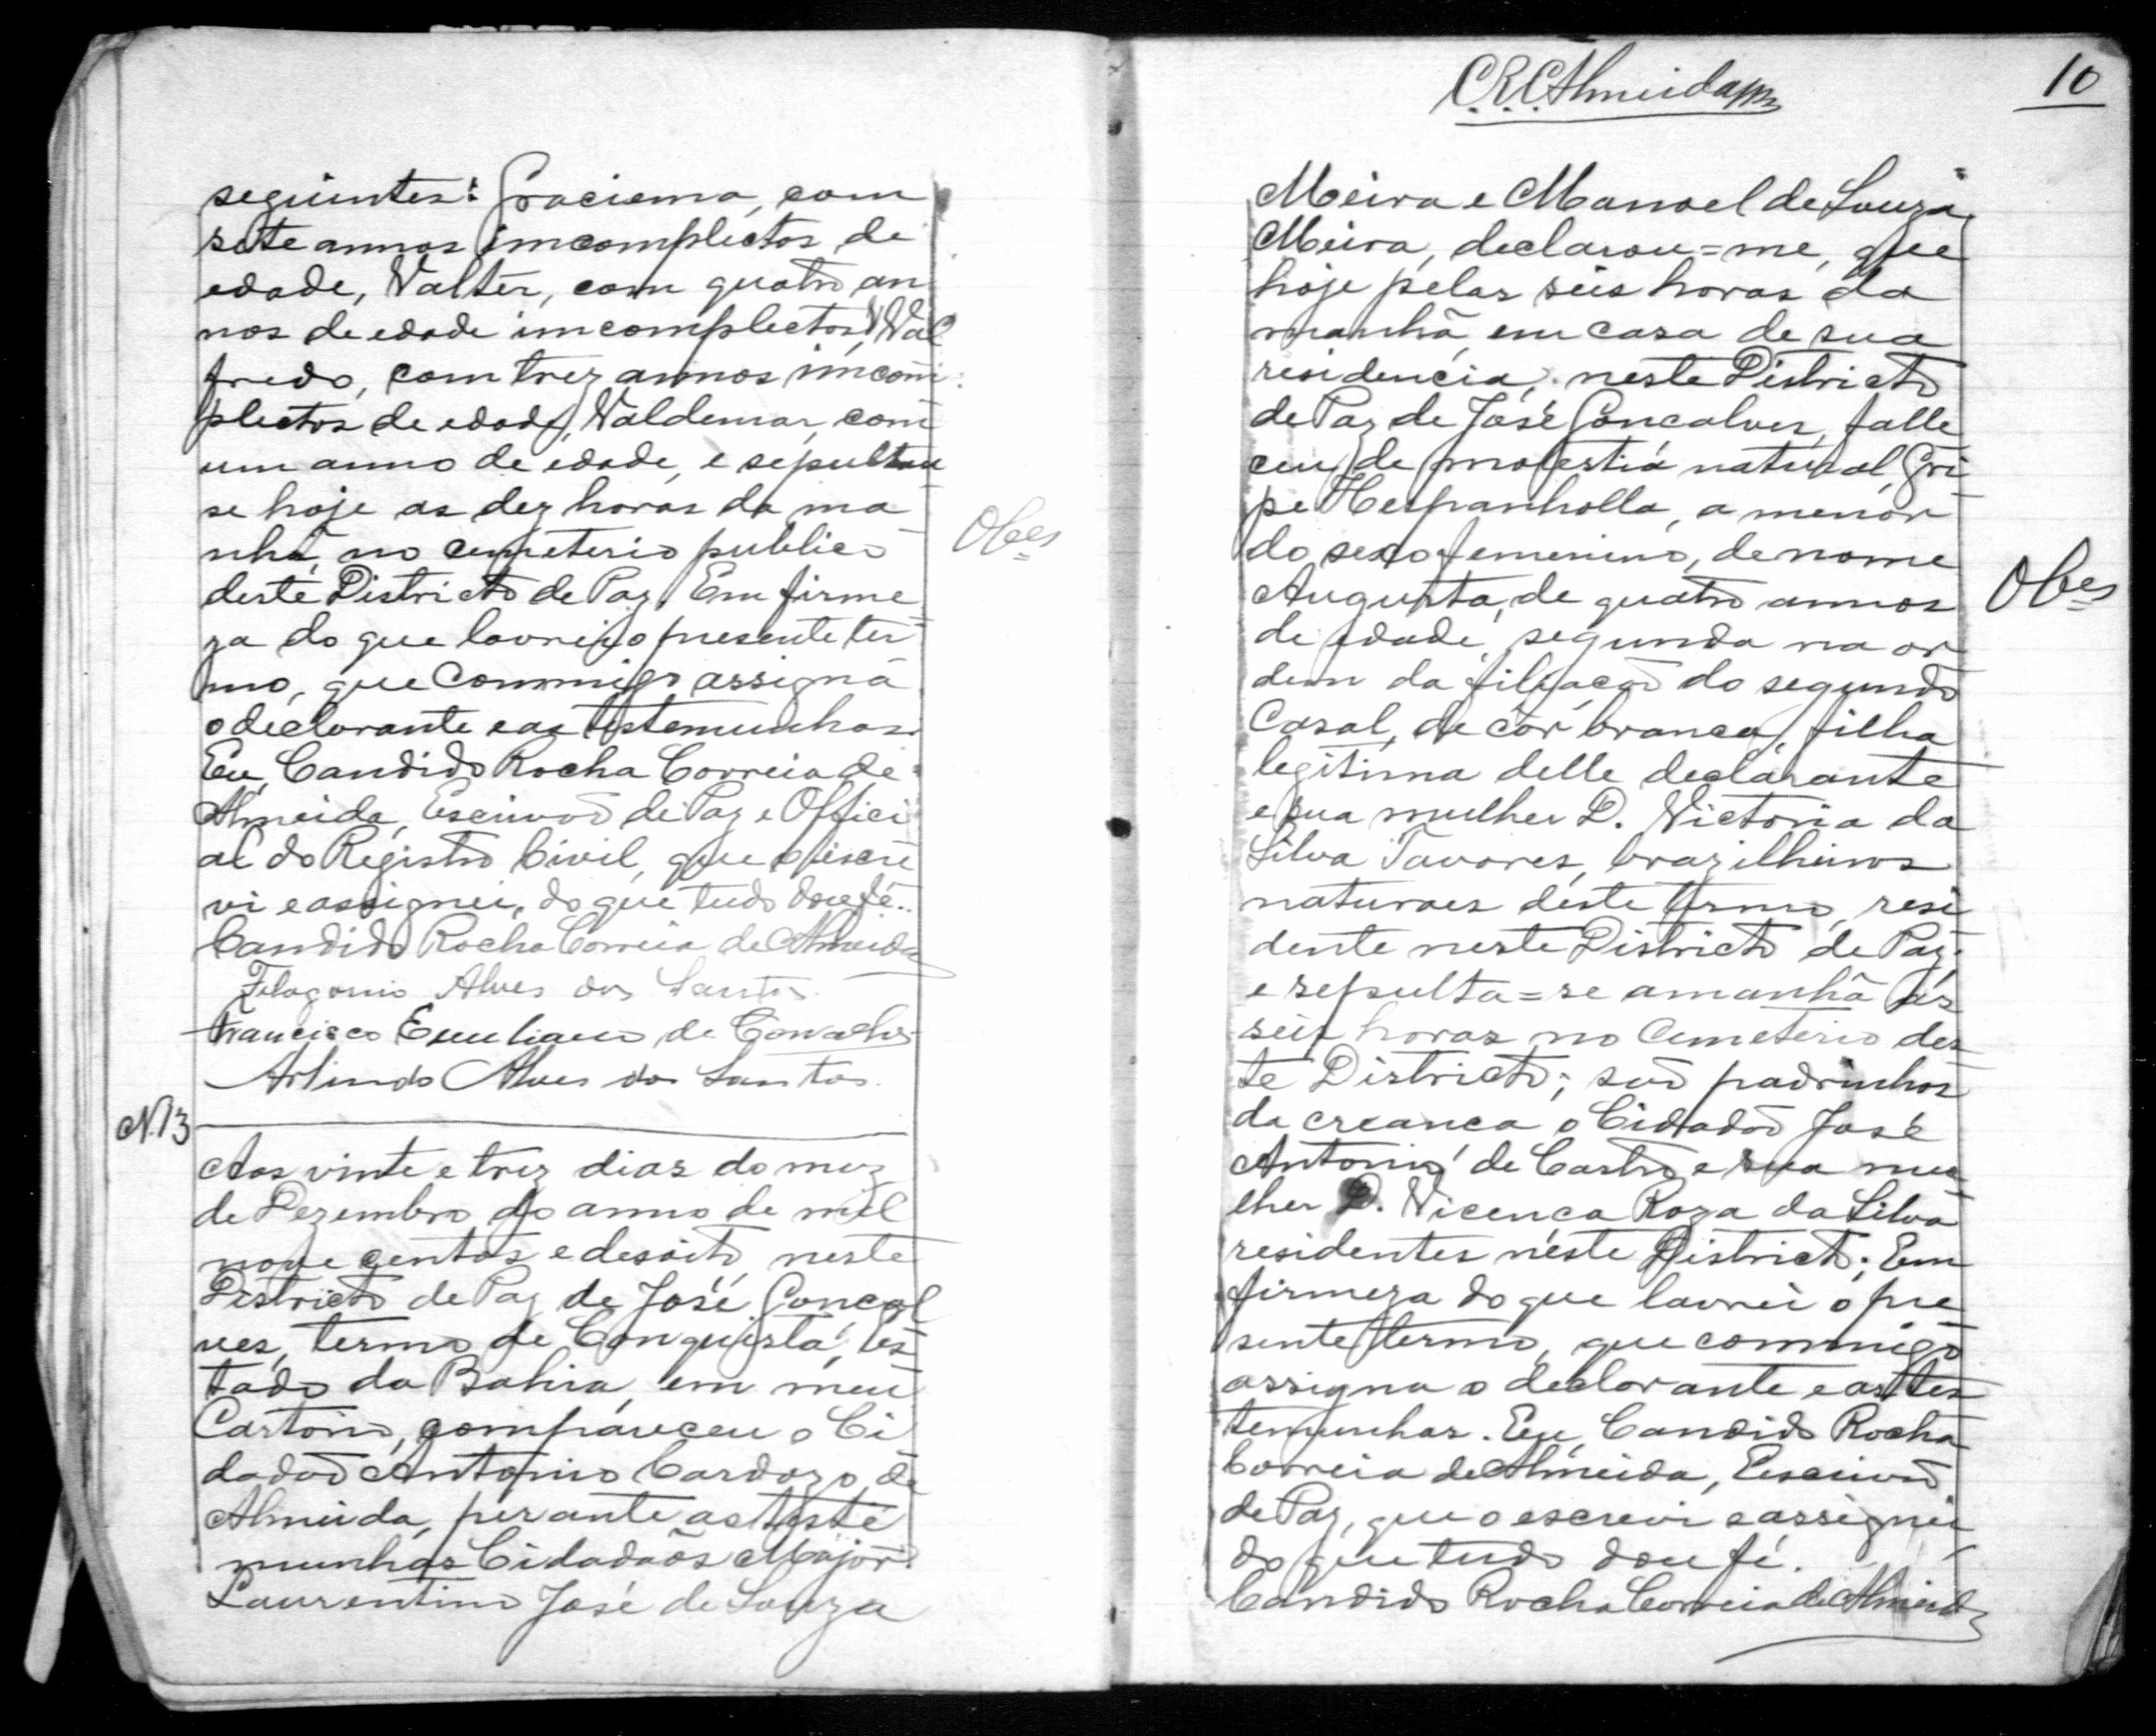 seguintes: Graciema, com
sete annos imcomplectos de
edade, Valter, com quatro an
nos de edade imcomplectos, Wal
fredo, com trez annos imcom
plectos de edade, Valdemar, com
um anno de edade, e sepultou
se hoje as dez horas da ma
nhã, no cemeterio publico
deste Districto de Paz. Em firme
za do que lavrei o presente ter
mo, que commigo assigna
o declarante e as testemunhas.
Eu, Candido Rocha Correia de
Almeida, Escrivão de Paz e Offici
al do Registro Civil, que o iscre
vi e assignei, do que tudo dou fé.
Candido Rocha Correia de Almeida
Filogonio Alves dos Santos.
Francisco Emiliano de Carvalho
Arlindo Alves dos Santos.
N. 13
Aos vinte e trez dias do mez
de Dezembro do anno de mil
nove centos e desoito, neste
Districto de Paz de José Goncal
ves, termo de Conquista, Es
tado da Bahia, em meu
Cartorio, compareceu o Ci
dadão Antonio Cardozo de
Almeida, perante as teste
munhas Cidadãos Major
Laurentino José de Souza
Obes
C.R.C. Almeida
10
Meira e Manoel de Souza
Meira, declarou=me, que
hoje pelas seis horas da
manhã, em casa de sua
residencia, neste Districto
de Paz de José Goncalves, falle
ceu, de molestia natural, Gri
pe Hespanholla, a menor
do sexo femenino, de nome
Augusta, de quatro annos
de edade, segunda na or
dem da filiação do segundo
Casal, de côr branca, filha
legitima delle declarante
e sua mulher D. Victoria da
Silva Tavares, brazilheiros
naturaes deste termo, resi
dente neste Districto de Paz.
e sepulta=se amanhã ás
seis horas no Cemeterio des
te Districto; são padrinhos
da creanca o Cidadão José
Antonio de Castro e sua mu
lher D. Vicenca Roza da Silva
residentes néste Districto; Em
firmeza do que lavrei o pre
sente termo, que commigo
assigna o declarante e as tes
temunhas. Eu, Candido Rocha
Correia de Almeida, Escrivão
de Paz, que o escrevi e assignei
do que tudo dou fé.
Candido Rocha Correia de Almeida
Obes